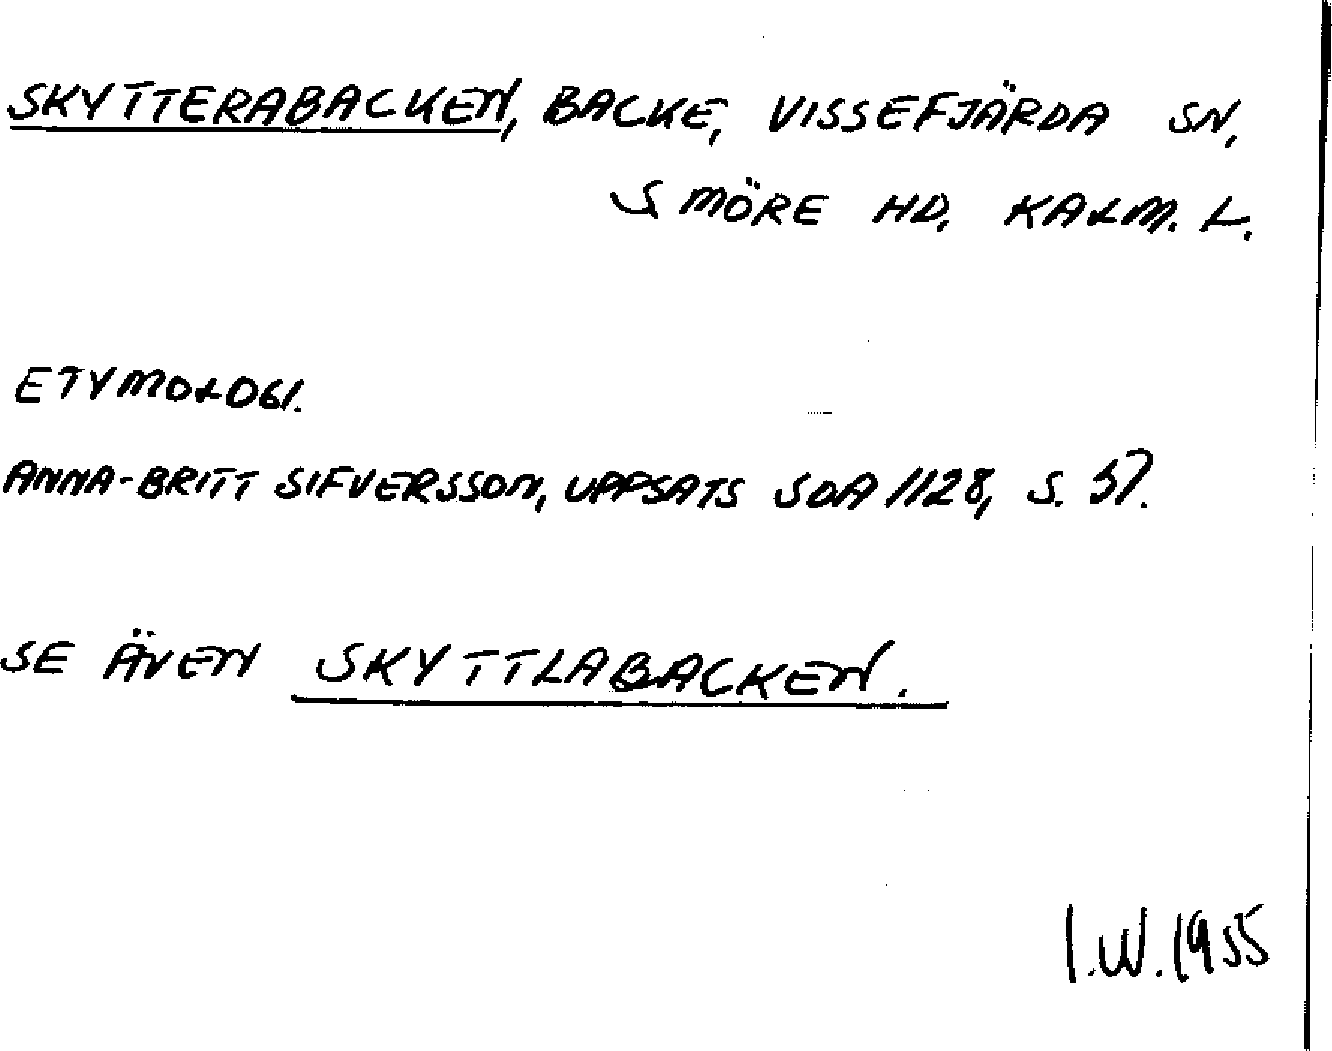 SKYTTERABACKEN, BACKE, VISSEFJÄRDA SN,
S MÖRE HD, KALM. L.
ETYMOLOGI.
ANNA-BRITT SIFVERSSON, UPPSATS SOA 1128, S. 57.
SE ÄVEN SKYTTLABACKEN.
I.W. 1955